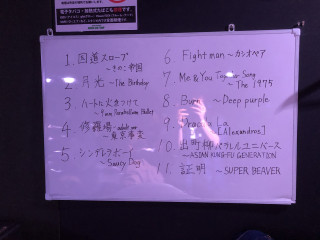 1. 国道スロープ
～きのこ帝国
2 月光 ～The Birthday
3 ハートに火をつけて
～9mm Parabellum Bullet
4 修羅場
～東京事変
5 シンデレラボーイ
～Saucy Dog
6 Fightman ～カシオペア
7 Me & You Together Song
～The 1975
8 Burn ～Deep purple
9. Dracula La
[Alexandros]
10. 出町柳パラレルユニバース
～ASIAN KUNG-FU GENERATION
11. 証明 ～SUPER BEAVER